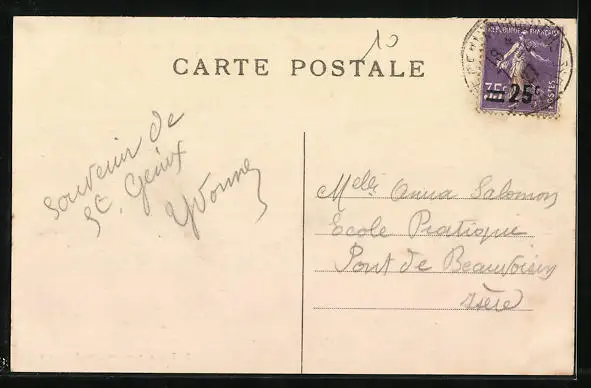 10
CARTE POSTALE
REPUBLIQUE FRANÇAISE
35c
25c
POSTES
Souvenir de
St. Genix
Yvonne
Melle Anna Salomon
Ecole Pratique
Pont de Beauvoisin
Isère